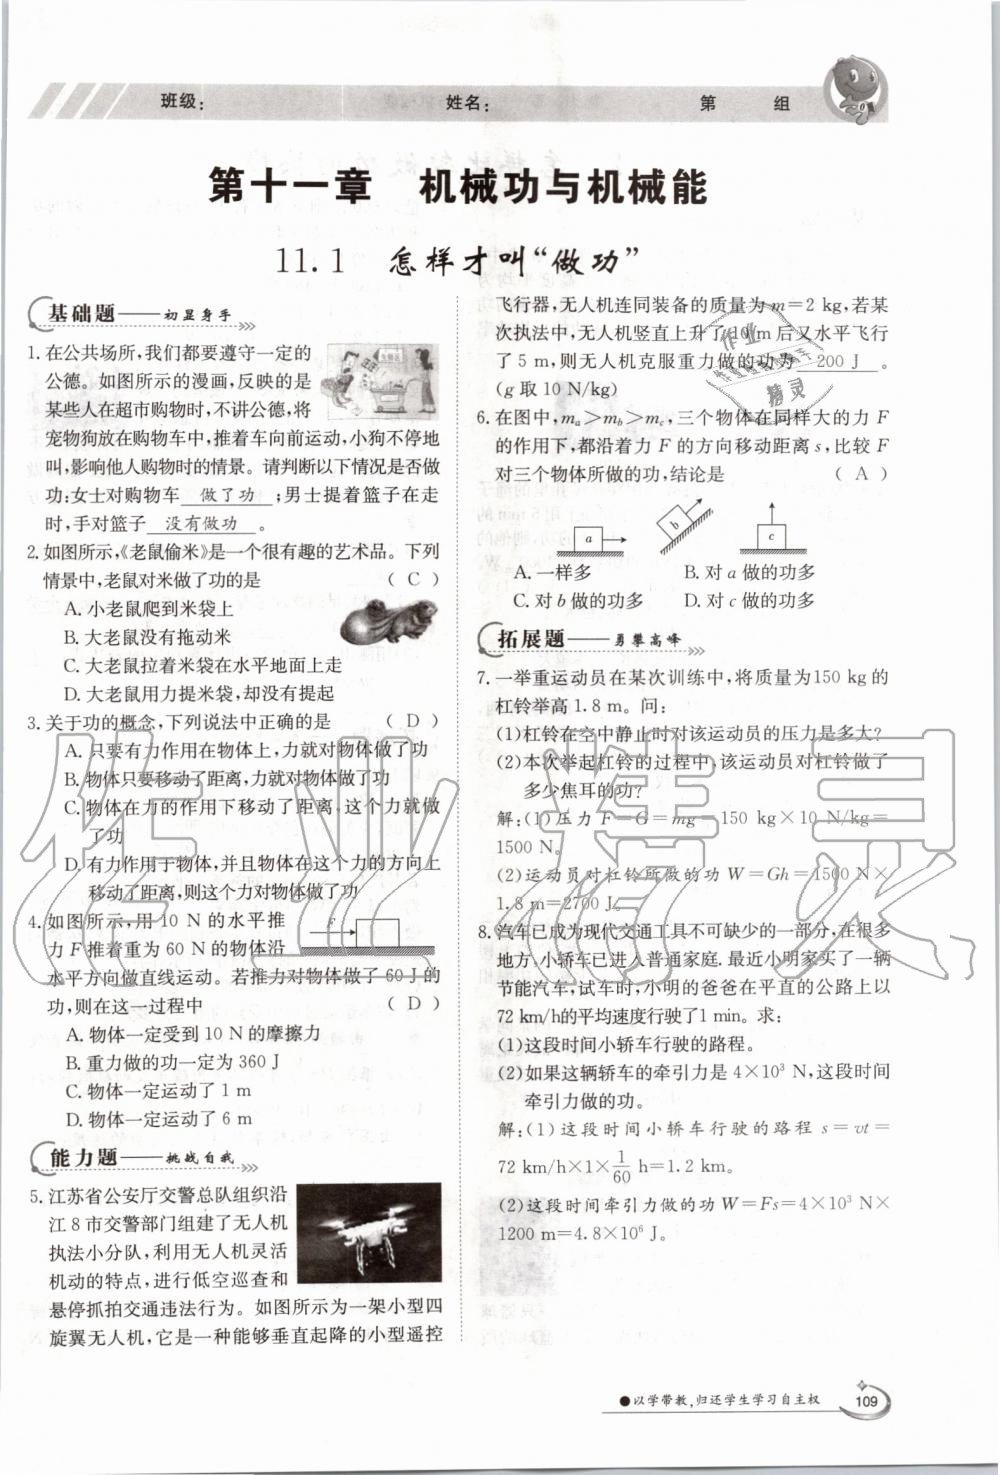 班级: 姓名: 第 组
第十一章 机械功与机械能
11.1 怎样才叫“做功”
基础题——初显身手
1. 在公共场所,我们都要遵守一定的
公德。如图所示的漫画,反映的是
某些人在超市购物时,不讲公德,将
宠物狗放在购物车中,推着车向前运动,小狗不停地
叫,影响他人购物时的情景。请判断以下情况是否做
功:女士对购物车 做了功 ;男士提着篮子在走
时,手对篮子 没有做功 。
2. 如图所示,《老鼠偷米》是一个很有趣的艺术品。下列
情景中,老鼠对米做了功的是 ( C )
A. 小老鼠爬到米袋上
B. 大老鼠没有拖动米
C. 大老鼠拉着米袋在水平地面上走
D. 大老鼠用力提米袋,却没有提起
3. 关于功的概念,下列说法中正确的是 ( D )
A. 只要有力作用在物体上,力就对物体做了功
B. 物体只要移动了距离,力就对物体做了功
C. 物体在力的作用下移动了距离,这个力就做
了功
D. 有力作用于物体,并且物体在这个力的方向上
移动了距离,则这个力对物体做了功
4. 如图所示,用 10 N 的水平推
力 F 推着重为 60 N 的物体沿
水平方向做直线运动。若推力对物体做了 60 J 的
功,则在这一过程中 ( D )
F
A. 物体一定受到 10 N 的摩擦力
B. 重力做的功一定为 360 J
C. 物体一定运动了 1 m
D. 物体一定运动了 6 m
能力题——挑战自我
5. 江苏省公安厅交警总队组织沿
江 8 市交警部门组建了无人机
执法小分队,利用无人机灵活
机动的特点,进行低空巡查和
悬停抓拍交通违法行为。如图所示为一架小型四
旋翼无人机,它是一种能够垂直起降的小型遥控
飞行器,无人机连同装备的质量为 m=2 kg,若某
次执法中,无人机竖直上升了 10 m 后又水平飞行
了 5 m,则无人机克服重力做的功为 200 J 。
(g 取 10 N/kg)
6. 在图中,mₐ>m_b>m_c,三个物体在同样大的力 F
的作用下,都沿着力 F 的方向移动距离 s,比较 F
对三个物体所做的功,结论是 ( A )
a b c
A. 一样多 B. 对 a 做的功多
C. 对 b 做的功多 D. 对 c 做的功多
拓展题——勇攀高峰
7. 一举重运动员在某次训练中,将质量为150 kg 的
杠铃举高 1.8 m。问:
(1)杠铃在空中静止时对该运动员的压力是多大?
(2)本次举起杠铃的过程中,该运动员对杠铃做了
多少焦耳的功?
解:(1)压力 F=G=mg=150 kg×10 N/kg=
1500 N。
(2)运动员对杠铃所做的功 W=Gh=1500 N×
1.8 m=2700 J。
8. 汽车已成为现代交通工具不可缺少的一部分,在很多
地方,小轿车已进入普通家庭.最近小明家买了一辆
节能汽车,试车时,小明的爸爸在平直的公路上以
72 km/h的平均速度行驶了1 min。求:
(1)这段时间小轿车行驶的路程。
(2)如果这辆轿车的牵引力是 4×10³ N,这段时间
牵引力做的功。
解:(1)这段时间小轿车行驶的路程 s=vt=
72 km/h×1×1/60 h=1.2 km。
(2)这段时间牵引力做的功 W=Fs=4×10³ N×
1200 m=4.8×10⁶ J。
作业精灵
作业
精灵
●以学带教,归还学生学习自主权 109